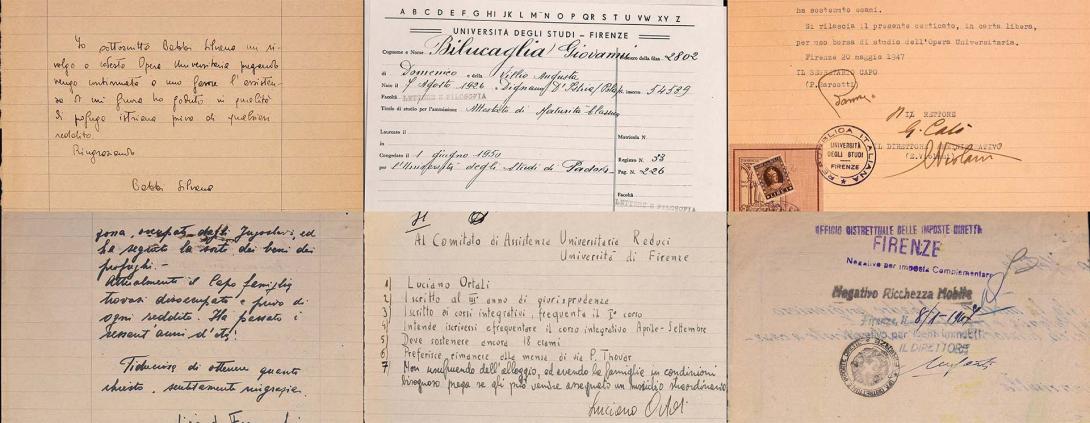 Io sottoscritta Babbi Silvana mi ri-
volgo a codesta Opera Universitaria pregando
venga continuata a mio favore l'assisten-
za di cui finora ho goduto in qualità
di profuga istriana priva di qualsiasi
reddito.
Ringraziando
Babbi Silvana
A B C D E F G H I J K L M N O P Q R S T U V W X Y Z
UNIVERSITÀ DEGLI STUDI - FIRENZE
Cognome e Nome Bilucaglia Giovanni Numero della filza 2802
di Domenico e della Villio Augusta
Nato il 7 Agosto 1926 Dignano D'Istria (Pola) 54539
Facoltà LETTERE E FILOSOFIA
Titolo di studio per l'ammissione: Attestato di Maturità Classica
Laureato il
Matricola N.
Congedato il 1 giugno 1950
Registro N. 33
per l'Università degli Studi di Padova
Pag. N. 226
Facoltà
LETTERE E FILOSOFIA
ha sostenuto esami.
Si rilascia il presente certicato, in carta libera,
per uso borsa di studio dell'Opera Universitaria.
Firenze 20 maggio 1947
IL SEGRETARIO CAPO
IL RETTORE
IL DIRETTORE
REPUBBLICA ITALIANA
UNIVERSITÀ DEGLI STUDI FIRENZE
zona occupata dagli Jugoslavi, ed
ha seguito la sorte dei beni dei
profughi.-
Attualmente il Capo famiglia
trovasi disoccupato e privo di
ogni reddito. Ha passato i
sessant'anni d'età!
Fiducioso di ottenere quanto
chiesto, sentitamente ringrazia.
Al Comitato di Assistenza Universitaria Reduci
Università di Firenze
1) Luciano Ortali
2) Iscritto al III anno di giurisprudenza
3) Iscritto ai corsi integrativi, frequenta il I° corso
4) Intende iscriversi e frequentare il corso integrativo Aprile - Settembre
5) Deve sostenere ancora 18 esami
6) Preferisce rimanere alla mensa di via P. Thouar
7) Non usufruendo dell'alloggio, ed avendo la famiglia in condizioni
bisognose prega se gli può venire assegnato un sussidio straordinario
Luciano Ortali
UFFICIO DISTRETTUALE DELLE IMPOSTE DIRETTE
FIRENZE
Negativo per imposta Complementare
Negativo Ricchezza Mobile
Firenze, li 8/1-1947
IL DIRETTORE